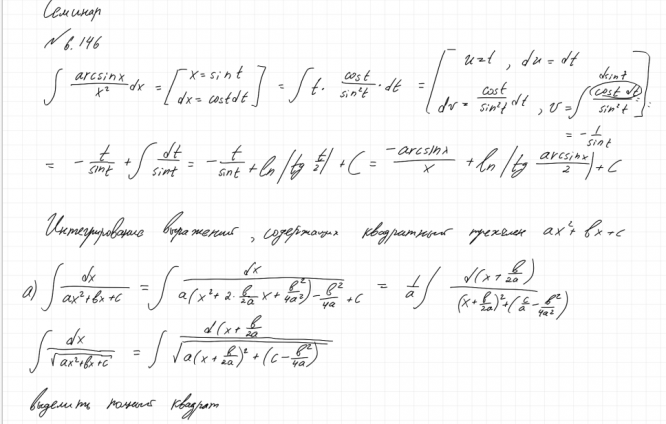 Семинар
№ 6.146
∫ arcsinx/x² dx = [x = sin t, dx = cost dt] = ∫ t · cost/sin²t · dt = [u = t, du = dt, dv = cost/sin²t dt, v = ∫ (cost dt)/sin²t dsint = -1/sint]
= - t/sint + ∫ dt/sint = - t/sint + ln|tg t/2| + C = -arcsinx/x + ln|tg arcsinx/2| + C
Интегрирование выражений, содержащих квадратный трехчлен ax² + bx + c
a) ∫ dx/(ax² + bx + c) = ∫ dx/(a(x² + 2 · b/2a x + b²/4a²) - b²/4a + c) = 1/a ∫ d(x + b/2a)/((x + b/2a)² + (c/a - b²/4a²))
∫ dx/√(ax² + bx + c) = ∫ d(x + b/2a)/√(a(x + b/2a)² + (c - b²/4a))
выделить полный квадрат